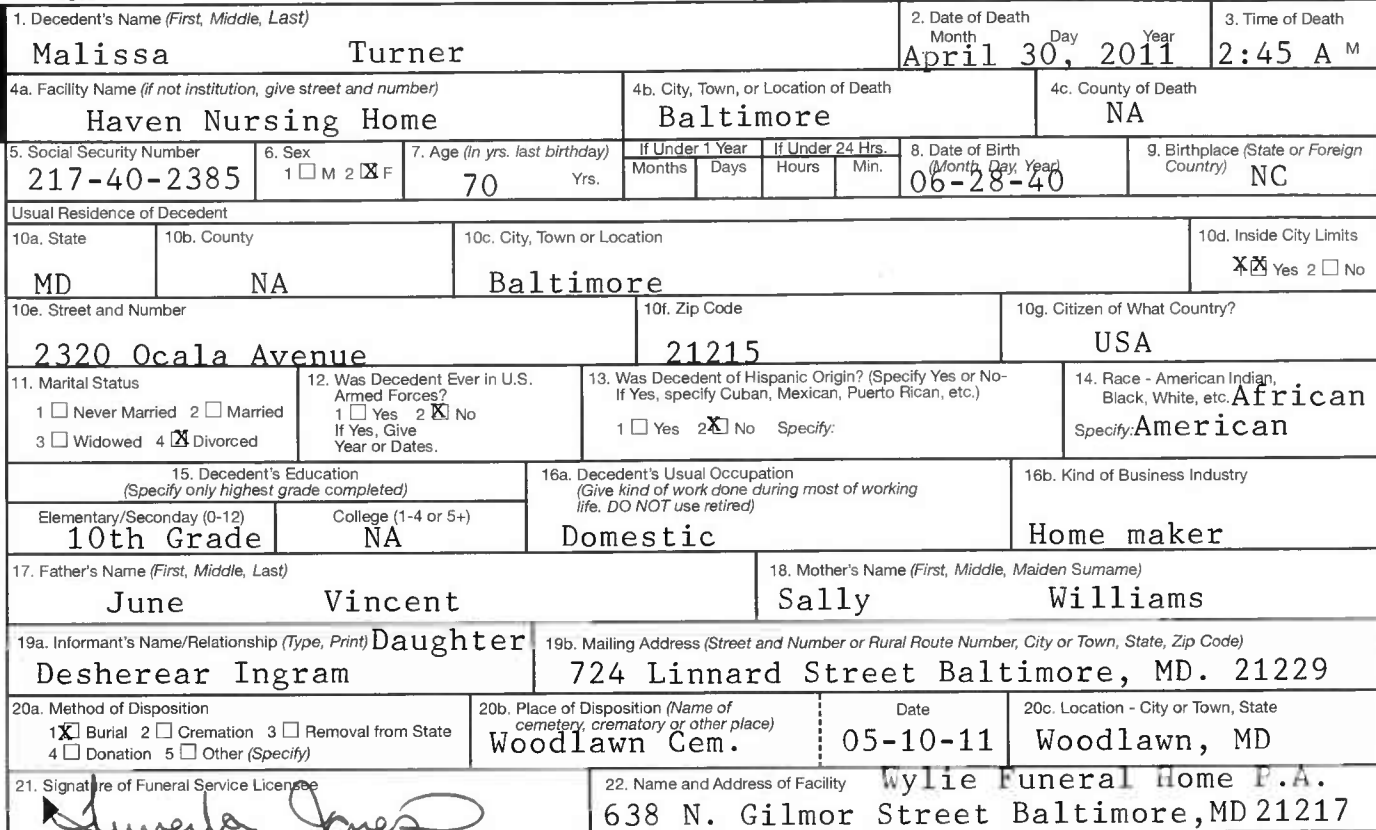 1. Decedent's Name (First, Middle, Last)
Malissa Turner
2. Date of Death
Month Day Year
April 30, 2011
3. Time of Death
2:45 A M
4a. Facility Name (if not institution, give street and number)
Haven Nursing Home
4b. City, Town, or Location of Death
Baltimore
4c. County of Death
NA
5. Social Security Number
217-40-2385
6. Sex
1 ☐ M 2 ☒ F
7. Age (In yrs. last birthday)
70 Yrs.
If Under 1 Year
Months Days
If Under 24 Hrs.
Hours Min.
8. Date of Birth
(Month, Day, Year)
06-28-40
9. Birthplace (State or Foreign
Country) NC
Usual Residence of Decedent
10a. State
MD
10b. County
NA
10c. City, Town or Location
Baltimore
10d. Inside City Limits
X☒ Yes 2 ☐ No
10e. Street and Number
2320 Ocala Avenue
10f. Zip Code
21215
10g. Citizen of What Country?
USA
11. Marital Status
1 ☐ Never Married 2 ☐ Married
3 ☐ Widowed 4 ☒ Divorced
12. Was Decedent Ever in U.S.
Armed Forces?
1 ☐ Yes 2 ☒ No
If Yes, Give
Year or Dates.
13. Was Decedent of Hispanic Origin? (Specify Yes or No-
If Yes, specify Cuban, Mexican, Puerto Rican, etc.)
1 ☐ Yes 2 ☒ No Specify:
14. Race - American Indian,
Black, White, etc. African
Specify: American
15. Decedent's Education
(Specify only highest grade completed)
Elementary/Seconday (0-12)
10th Grade
College (1-4 or 5+)
NA
16a. Decedent's Usual Occupation
(Give kind of work done during most of working
life. DO NOT use retired)
Domestic
16b. Kind of Business Industry
Home maker
17. Father's Name (First, Middle, Last)
June Vincent
18. Mother's Name (First, Middle, Maiden Surname)
Sally Williams
19a. Informant's Name/Relationship (Type, Print) Daughter
Desherear Ingram
19b. Mailing Address (Street and Number or Rural Route Number, City or Town, State, Zip Code)
724 Linnard Street Baltimore, MD. 21229
20a. Method of Disposition
1 ☒ Burial 2 ☐ Cremation 3 ☐ Removal from State
4 ☐ Donation 5 ☐ Other (Specify)
20b. Place of Disposition (Name of
cemetery, crematory or other place)
Woodlawn Cem.
Date
05-10-11
20c. Location - City or Town, State
Woodlawn, MD
21. Signature of Funeral Service Licensee
Jones
22. Name and Address of Facility Wylie Funeral Home P.A.
638 N. Gilmor Street Baltimore,MD 21217